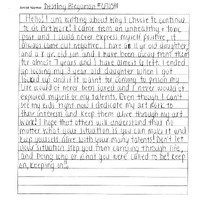 Destiny
Hello! I am writing about why I chose to continue
to do Art work! I came from an unhealthy + toxic
past and I could never express myself positive, it
always came out negative. I have an 11 yr old daughter
and a 1 yr old son and I have been away from them
for almost 2 years and I have almost 2 left. I ended
up missing my 3 year old daughter when I got
locked up and if it wasn't for coming to prison my
life would of never been saved and I never would of
explored myself or my talents. Even though I can't
see my kids right now I dedicate my art work to
their interests and keep them alive through my art
work! I hope that others will understand that no
matter what your situation is you can make it and
keep yourself alive with your many talents! Don't let
your situation stop you from carrying through life,
and being who or what you were called to be! Keep
on, keeping on!